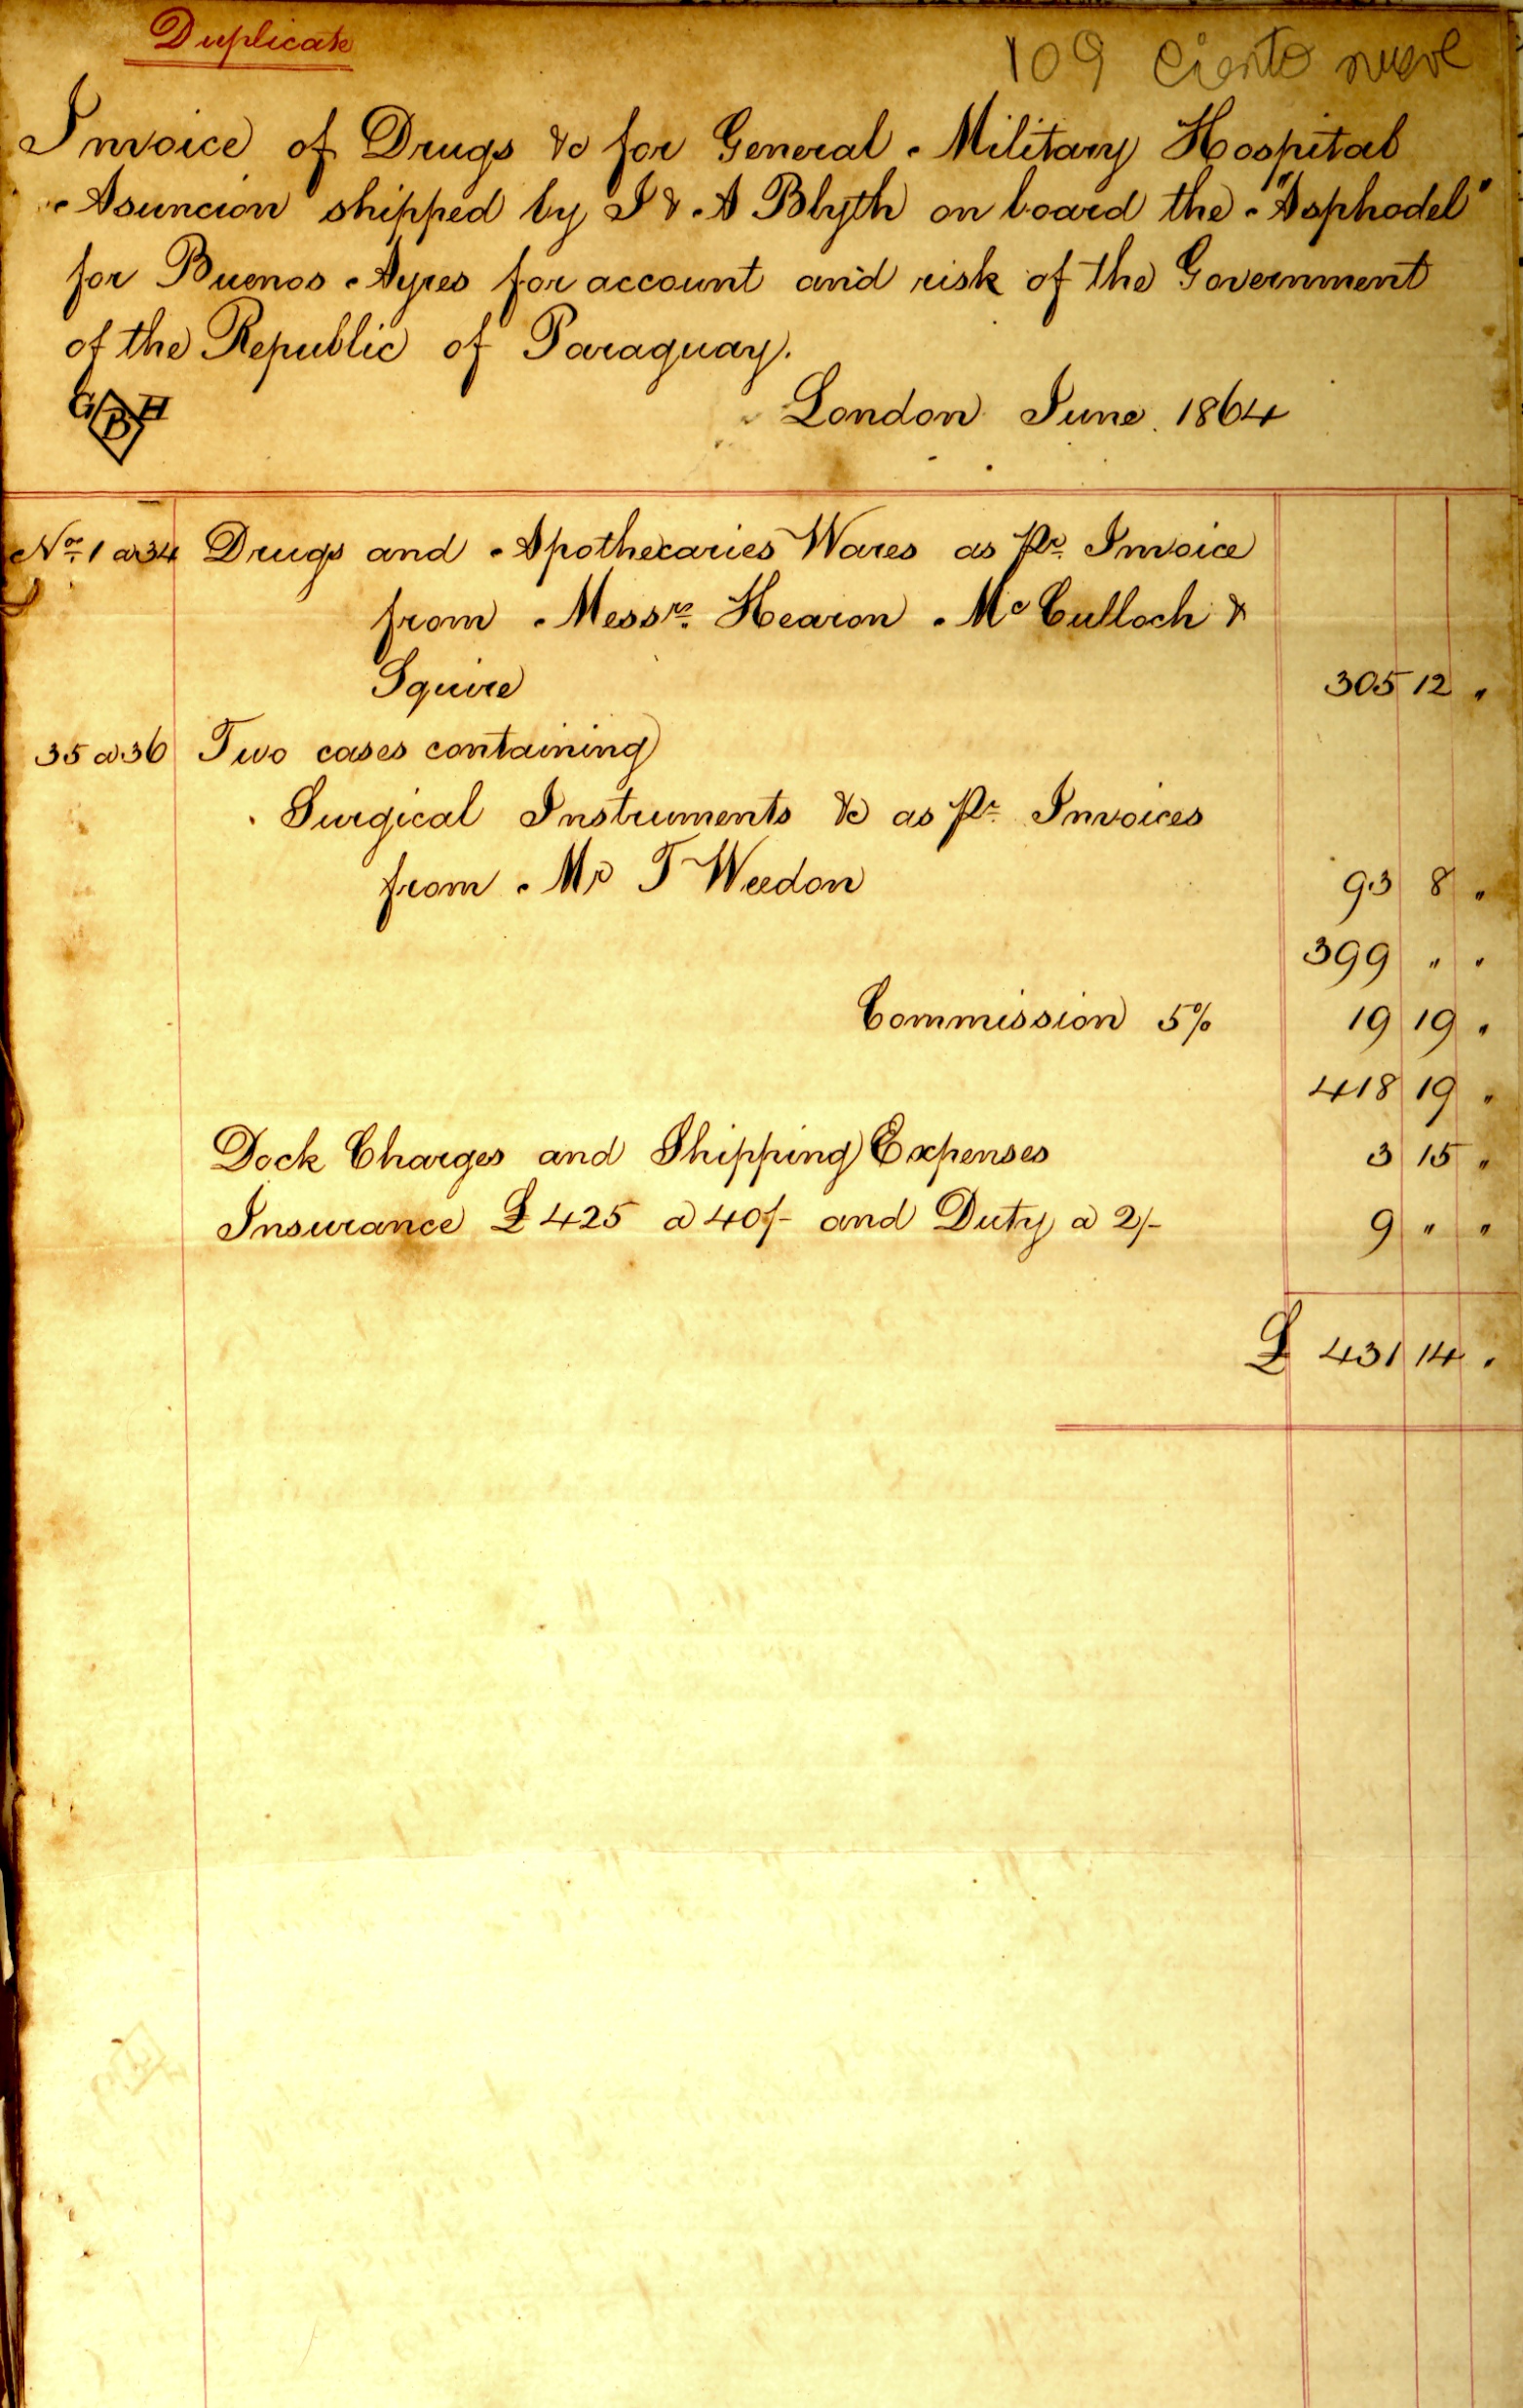 Duplicate
109 ciento nueve
Invoice of Drugs &c for General Military Hospital
Asuncion shipped by J & A Blyth on board the "Asphodel"
for Buenos Ayres for account and risk of the Government
of the Republic of Paraguay.
G B H
London June 1864
Nos. 1 a 34 Drugs and Apothecaries Wares as Pr. Invoice
from Messrs. Hearon McCulloch &
Squire 305 12 "
35 a 36 Two cases containing
Surgical Instruments &c as Pr. Invoices
from Mr T Weedon 93 8 "
399 " "
Commission 5% 19 19 "
418 19 "
Dock Charges and Shipping Expenses 3 15 "
Insurance £425 a 40/- and Duty a 2/- 9 " "
£ 431 14 "